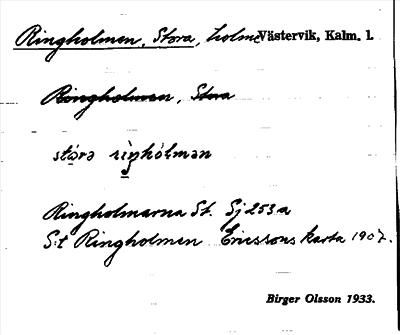 Ringholmen, Stora, holme Västervik, Kalm. l.
Ringholmen, Stora
stóra riŋhólmən
Ringholmarna St. Sj 253 a
S:t Ringholmen Ericssons karta 1907.
Birger Olsson 1933.